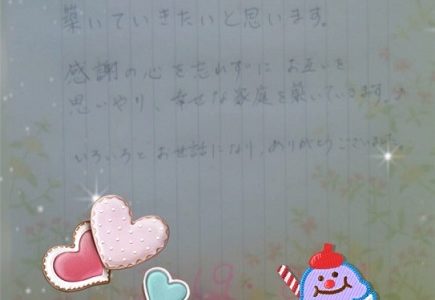 築いていきたいと思います。
感謝の心を忘れずに お互いを
思いやり、幸せな家庭を築いていきます。
いろいろとお世話になり、ありがとうございました。